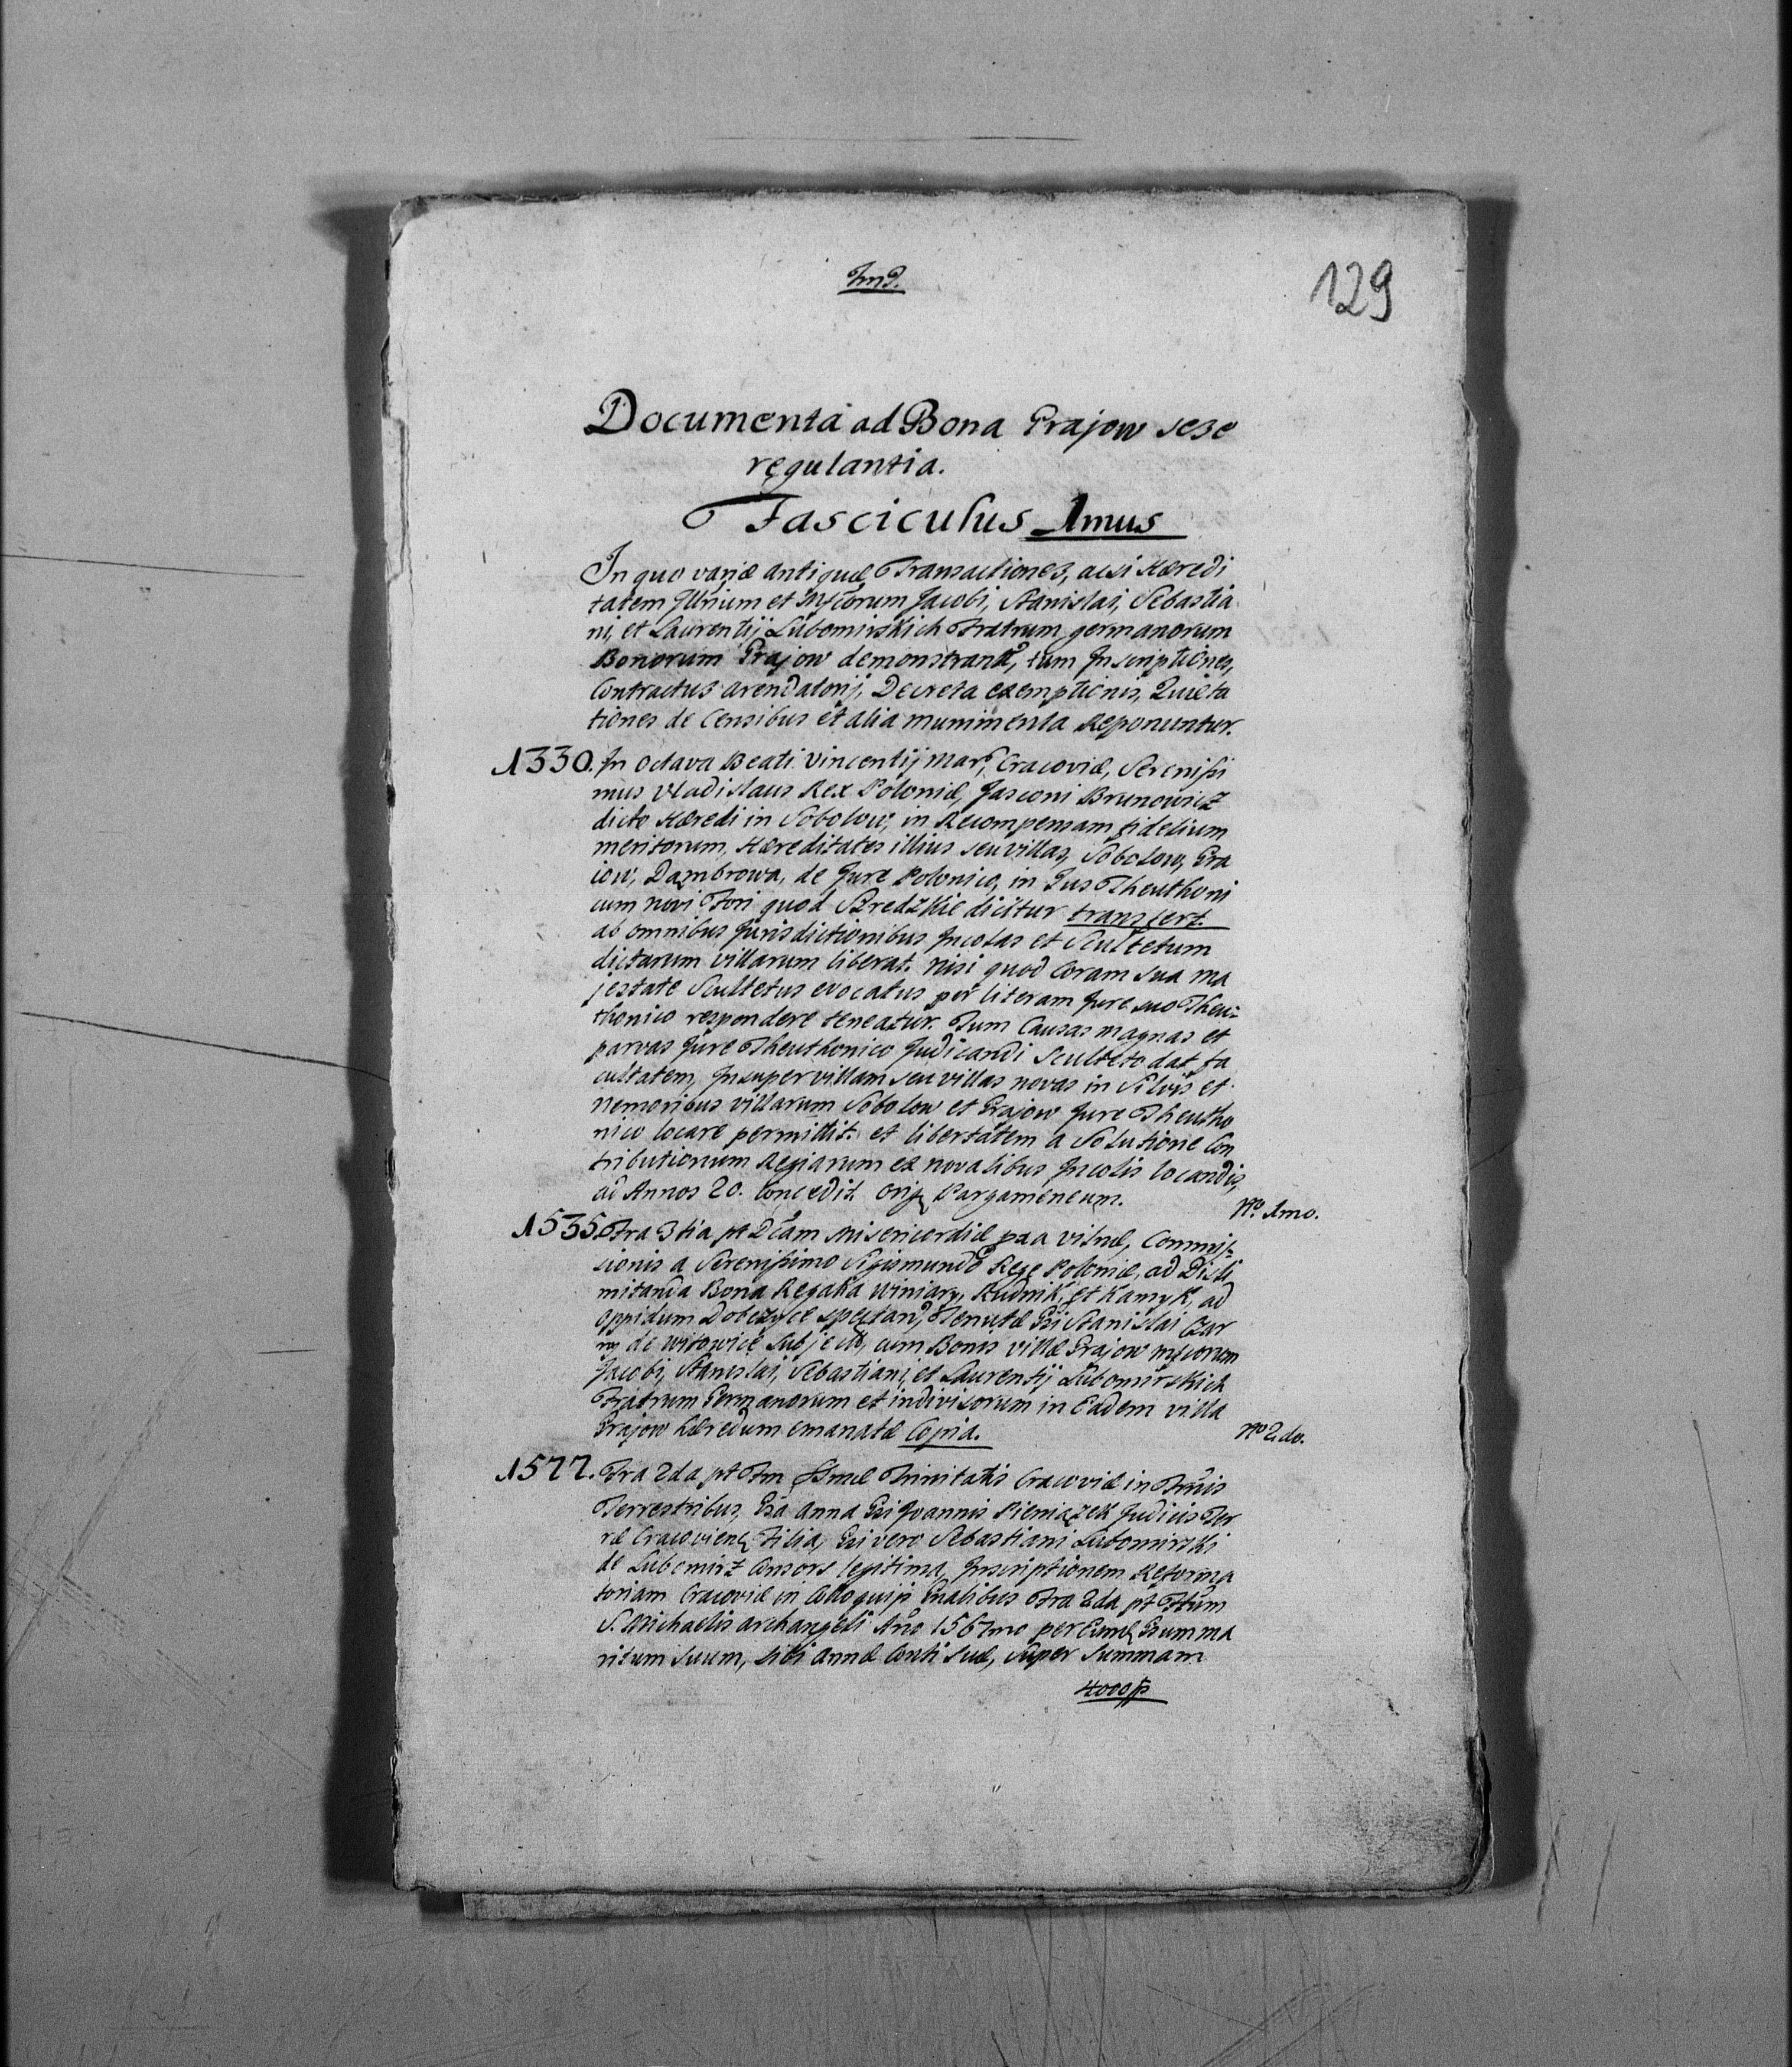 129
Documenta ad Bona Grajow sese
regulantia.
Fasciculus 1mus
In quo variæ antiquæ Transactiones, acsi Hæredi
tatem Illrium et Mfcorum Jacobi, Stanislai, Sebastia
ni, et Laurentij Lubomirskich Fratrum germanorum
Bonorum Grajow demonstran, tum Inscriptiones,
Contractus arendatorij, Decreta exemptionis, Quieta
tiones de Censibus et alia munimenta Reponuntur.
1330. In octava Beati Vincentij Mar, Cracoviæ, Serenissi
mus Vladislaus Rex Poloniæ, Jasconi Brunowicz
dicto Hæredi in Sobolow, in Recompensam fidelium
meritorum, Hæreditates illius seu villas, Sobolow, Gra
iow, Dąmbrowa, de Jure Polonico, in Jus Theuthoni
cum novi Fori quod Szredzkie dicitur transfert.
ab omnibus Jurisdictionibus Incolas et Scultetum
dictarum villarum liberat. nisi quod Coram sua ma
jestate Scultetus evocatus per literam Jure suo Theu=
thonico respondere teneatur. Tum Causas magnas et
parvas Jure Theuthonico Judicandi Sculteto dat fa
cultatem, Insuper villam seu villas novas in Silvis et
Nemoribus villarum Sobolow et Grajow Jure Theutho
nico locare permittit. et libertatem a Solutione Con
tributionum Regiarum ex novalibus Incolis locandis,
ad Annos 20. concedit orig Pargameneum.
No. 1mo.
1535. Fra 3tia pt Dcam Misericordiæ pxa Visnæ, Commis=
sionis a Serenissimo Sigismundo Rege Poloniæ, ad Disli
mitanda Bona Regalia Winiary, Rudnik, et Kamyk, ad
oppidum Dobczyce spectan, Tenutæ Gsi Stanislai Czar
ny de Witowice subject, cum Bonis villæ Grajow mfcorum
Jacobi, Stanislai, Sebastiani, et Laurentij Lubomirskich
Fratrum Germanorum et indivisorum in Eadem villa
Grajow hæredum emanatæ Copia.
No 2do.
1577. Fra 2da pt Fm SSmæ Trinitatis Cracoviæ in Trmis
Terrestribus, Gsa Anna Gsi Joannis Pieniążek Judicis Ter
ræ Cracovien Filia, Gsi vero Sebastiani Lubomirski
de Lubomirz Consors legitima, Inscriptionem Reforma
toriam Cracoviæ in Colloquijs Gnalibus Fra 2da pt Ftum
S. Michaelis archangeli Ano 1567mo per Eund Gsum ma
ritum suum, sibi Annæ Conti suæ, super summam
4000